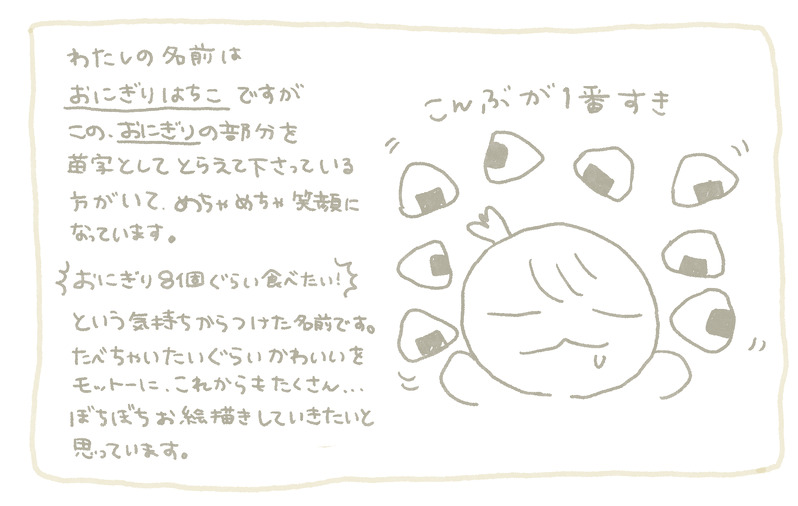 わたしの名前は
おにぎりはちこ ですが
この、おにぎりの部分を
苗字としてとらえて下さっている
方がいて、めちゃめちゃ笑顔に
なっています。
おにぎり8個ぐらい食べたい!
という気持ちからつけた名前です。
たべちゃいたいぐらいかわいいを
モットーに、これからもたくさん...
ぼちぼちお絵描きしていきたいと
思っています。
こんぶが1番すき